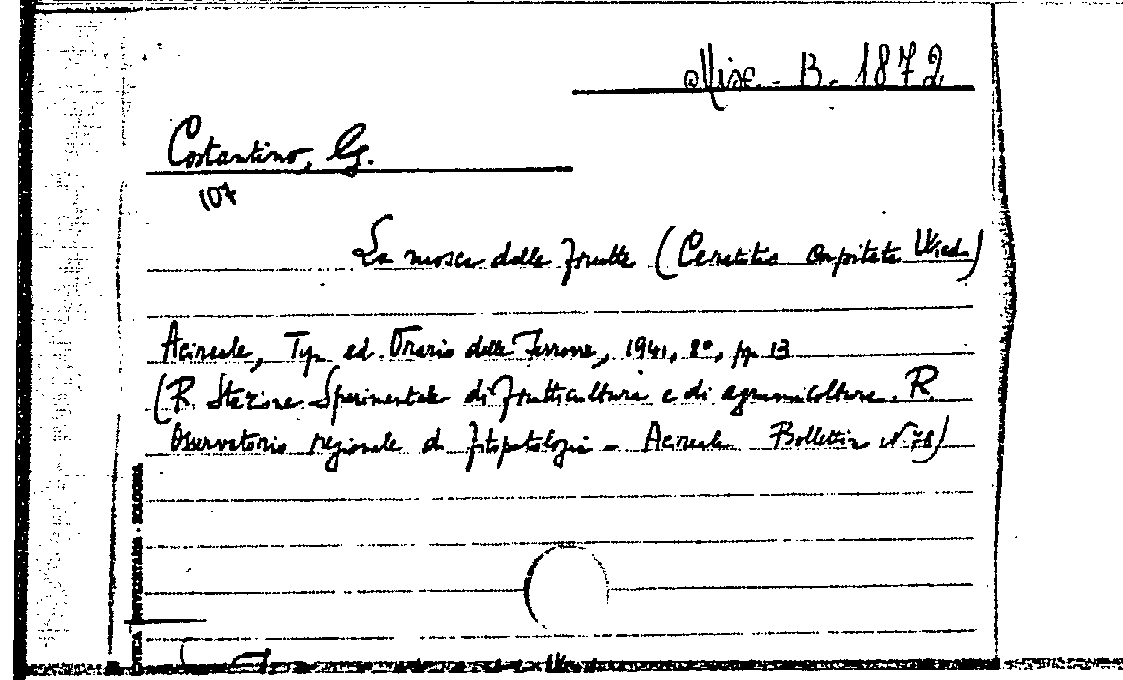 Misc. B. 1872
Costantino, G.
107
La mosca delle frutta (Ceratitis capitata Wied.)
Acireale, Tip. ed. Orario delle Ferrovie, 1941, 8°, pp. 13
(R. Stazione Sperimentale di frutticultura e di agrumicoltura. R.
Osservatorio regionale di fitopatologia - Acireale Bollettin N. 78)
UNIVERSITARIA - BOLOGNA